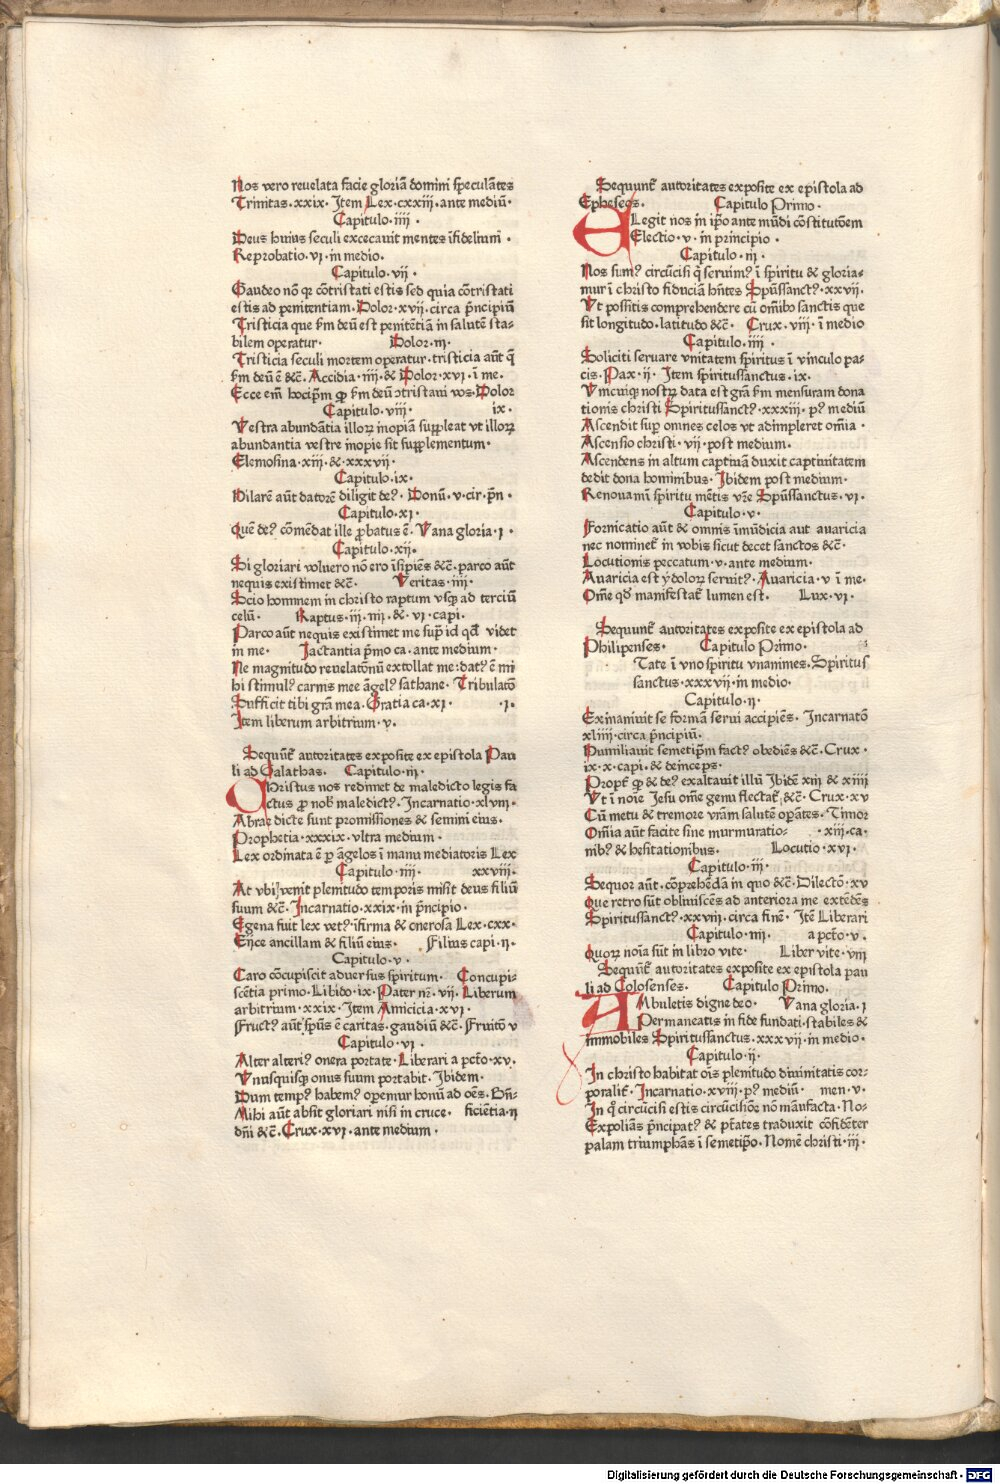 Nos vero reuelata facie gloriā domini speculātes
Trinitas·xxix· Item Lex·cxxiii·ante mediū·
Capitulo·iiii·
Deus huius seculi excecauit mentes īfidelium·
Reprobatio·vi·in medio·
Capitulo·vii·
Gaudeo nō qꝛ cōtristati estis sed quia cōtristati
estis ad penitentiam·Dolor·xvii·circa p̄ncipiū
Tristicia que ẜm deū est penitētiā in salutē sta-
bilem operatur· Dolor·iii·
Tristicia seculi mortem operatur·tristicia aūt q̄
ẜm deū ē &c̄·Accidia·iiii·& Dolor·xvi·ī me·
Ecce em̄ hocip̄m ꝙ ẜm deū ↄtristari vos·Dolor
Capitulo·viii· ix·
Vestra abundātia illoꝝ inopiā suppleat vt illoꝝ
abundantia vestre inopie sit supplementum·
Elemosina·xiii·&·xxxvii·
Capitulo·ix·
Hilarē aūt datorē diligit de⁹· Donū·v·cir·p̄n·
Capitulo·xi·
Quē de⁹ cōmēdat ille ꝓbatus ē· Vana gloria·i·
Capitulo·xii·
Si gloriari voluero nō ero īsipiēs &c̄·parco aūt
nequis existimet &c̄· Veritas·iiii·
Scio hominem in christo raptum vsqꝫ ad terciū
celū· Raptus·iii·iiii·&·vi·capi·
Parco aūt nequis existimet me sup̄ id qd̄ videt
in me· Iactantia p̄mo ca·ante medium·
Ne magnitudo reuelationū extollat me:dat⁹ ē mi
hi stimul⁹ carnis mee āgel⁹ sathane· Tribulatō
Sufficit tibi grā mea·Gratia ca·xi· ·i·
Item liberum arbitrium·v·
Sequūt᷑ autoritates exposite ex epistola Pau
li ad Galathas· Capitulo·iii·
CHristus nos redimet de maledicto legis fa
ctus ꝓ nob̄ maledict⁹·Incarnatio·xlviii·
Abrae dicte sunt promissiones & semini eius·
Prophetia·xxxix·vltra medium·
Lex ordinata ē ꝑ āgelos ī manu mediatoris Lex
Capitulo·iiii· xxviii·
At vbi venit plenitudo temporis misit deus filiū
suum &c̄·Incarnatio·xxix·in p̄ncipio·
Egena fuit lex vet⁹·īfirma & onerosa Lex·cxx·
Eijce ancillam & filiū eius· Filius capi·ii·
Capitulo·v·
Caro cōcupiscit aduersus spiritum· Concupi-
scētia primo·Libido·ix·Pater nr̄·vii·Liberum
arbitrium·xxix·Item Amicicia·xvi·
Fruct⁹ aūt sp̄us ē caritas·gaudiū &c̄·Fruitō v
Capitulo·vi·
Alter alteri⁹ onera portate·Liberari a pctō·xv·
Vnusquisqꝫ onus suum portabit·Ibidem·
Dum temp⁹ habem⁹ operemur bonū ad oēs·Bn̄-
Mihi aūt absit gloriari nisi in cruce· ficiētia·ii
dn̄i &c̄·Crux·xvi·ante medium·
Sequunt᷑ autoritates exposite ex epistola ad
Epheseos· Capitulo Primo·
ELegit nos in ip̄o ante mūdi cōstitutōem
Electio·v·in principio·
Capitulo·iii·
Nos sum⁹ circūcisi q̄ seruim⁹ ī spiritu & gloria-
mur ī christo fiduciā hn̄tes Sp̄ussanct⁹·xxvii·
Vt possitis comprehendere cū om̄ibꝫ sanctis que
sit longitudo·latitudo &c̄· Crux·viii·ī medio
Capitulo·iiii·
Soliciti seruare vnitatem spiritus ī vinculo pa-
cis·Pax·ii· Item spiritussanctus·ix·
Vnicuiqꝫ nostꝝ data est grā ẜm mensuram dona
tionis christi Spiritussanct⁹·xxxiii·p⁹ mediū
Ascendit sup̄ omnes celos vt adimpleret om̄ia·
Ascensio christi·vii·post medium·
Ascendens in altum captiuā duxit captiuitatem
dedit dona hominibus·Ibidem post medium·
Renouamī spiritu mētis vr̄e Sp̄ussanctus·vi·
Capitulo·v·
Fornicatio aūt & omnis īmūdicia aut auaricia
nec nominet᷑ in vobis sicut decet sanctos &c̄·
Locutionis peccatum·v·ante medium·
Auaricia est ydoloꝝ seruit⁹·Auaricia·v ī me·
Om̄e qd̄ manifestat᷑ lumen est· Lux·vi·
Sequunt᷑ autoritates exposite ex epistola ad
Philipenses· Capitulo Primo·
Tate ī vno spiritu vnanimes·Spiritus
sanctus·xxxvii·in medio·
Capitulo·ii·
Exinaniuit se formā serui accipiēs· Incarnatō
xliiii·circa p̄ncipiū·
Humiliauit semetip̄m fact⁹ obediēs &c̄·Crux·
ix·x·capi·& deinceps·
Propt᷑ ꝙ & de⁹ exaltauit illū Ibidē xiii & xiiii
Vt ī noīe Iesu om̄e genu flectat᷑ &c̄·Crux·xv
Cū metu & tremore vr̄am salutē opātes·Timor
Om̄ia aūt facite sine murmuratio- ·xiii·ca·
nib⁹ & hesitationibus· Locutio·xvi·
Capitulo·iii·
Sequor aūt·cōprehēdā in quo &c̄·Dilectō·xv
Que retro sūt obliuiscēs ad anteriora me extēdēs
Spiritussanct⁹·xxviii·circa finē· Itē Liberari
Capitulo·iiii· a pctō·v·
Quoꝝ noīa sūt in libro vite· Liber vite·viii
Sequūt᷑ autoritates exposite ex epistola pau
li ad Colosenses· Capitulo Primo·
AMbuletis digne deo· Vana gloria·i
Permaneatis in fide fundati·stabiles &
immobiles Spiritussanctus·xxxvii·in medio·
Capitulo·ii·
In christo habitat oīs plenitudo diuinitatis cor-
poralit᷑·Incarnatio·xviii·p⁹ mediū· men·v·
In q̊ circūcisi estis circūcisiōe nō manufacta·No-
Expoliās p̄ncipat⁹ & ptātes traduxit cōfidēter
palam triumphās ī semetip̄o·Nomē christi·iii·
Digitalisierung gefördert durch die Deutsche Forschungsgemeinschaft - DFG